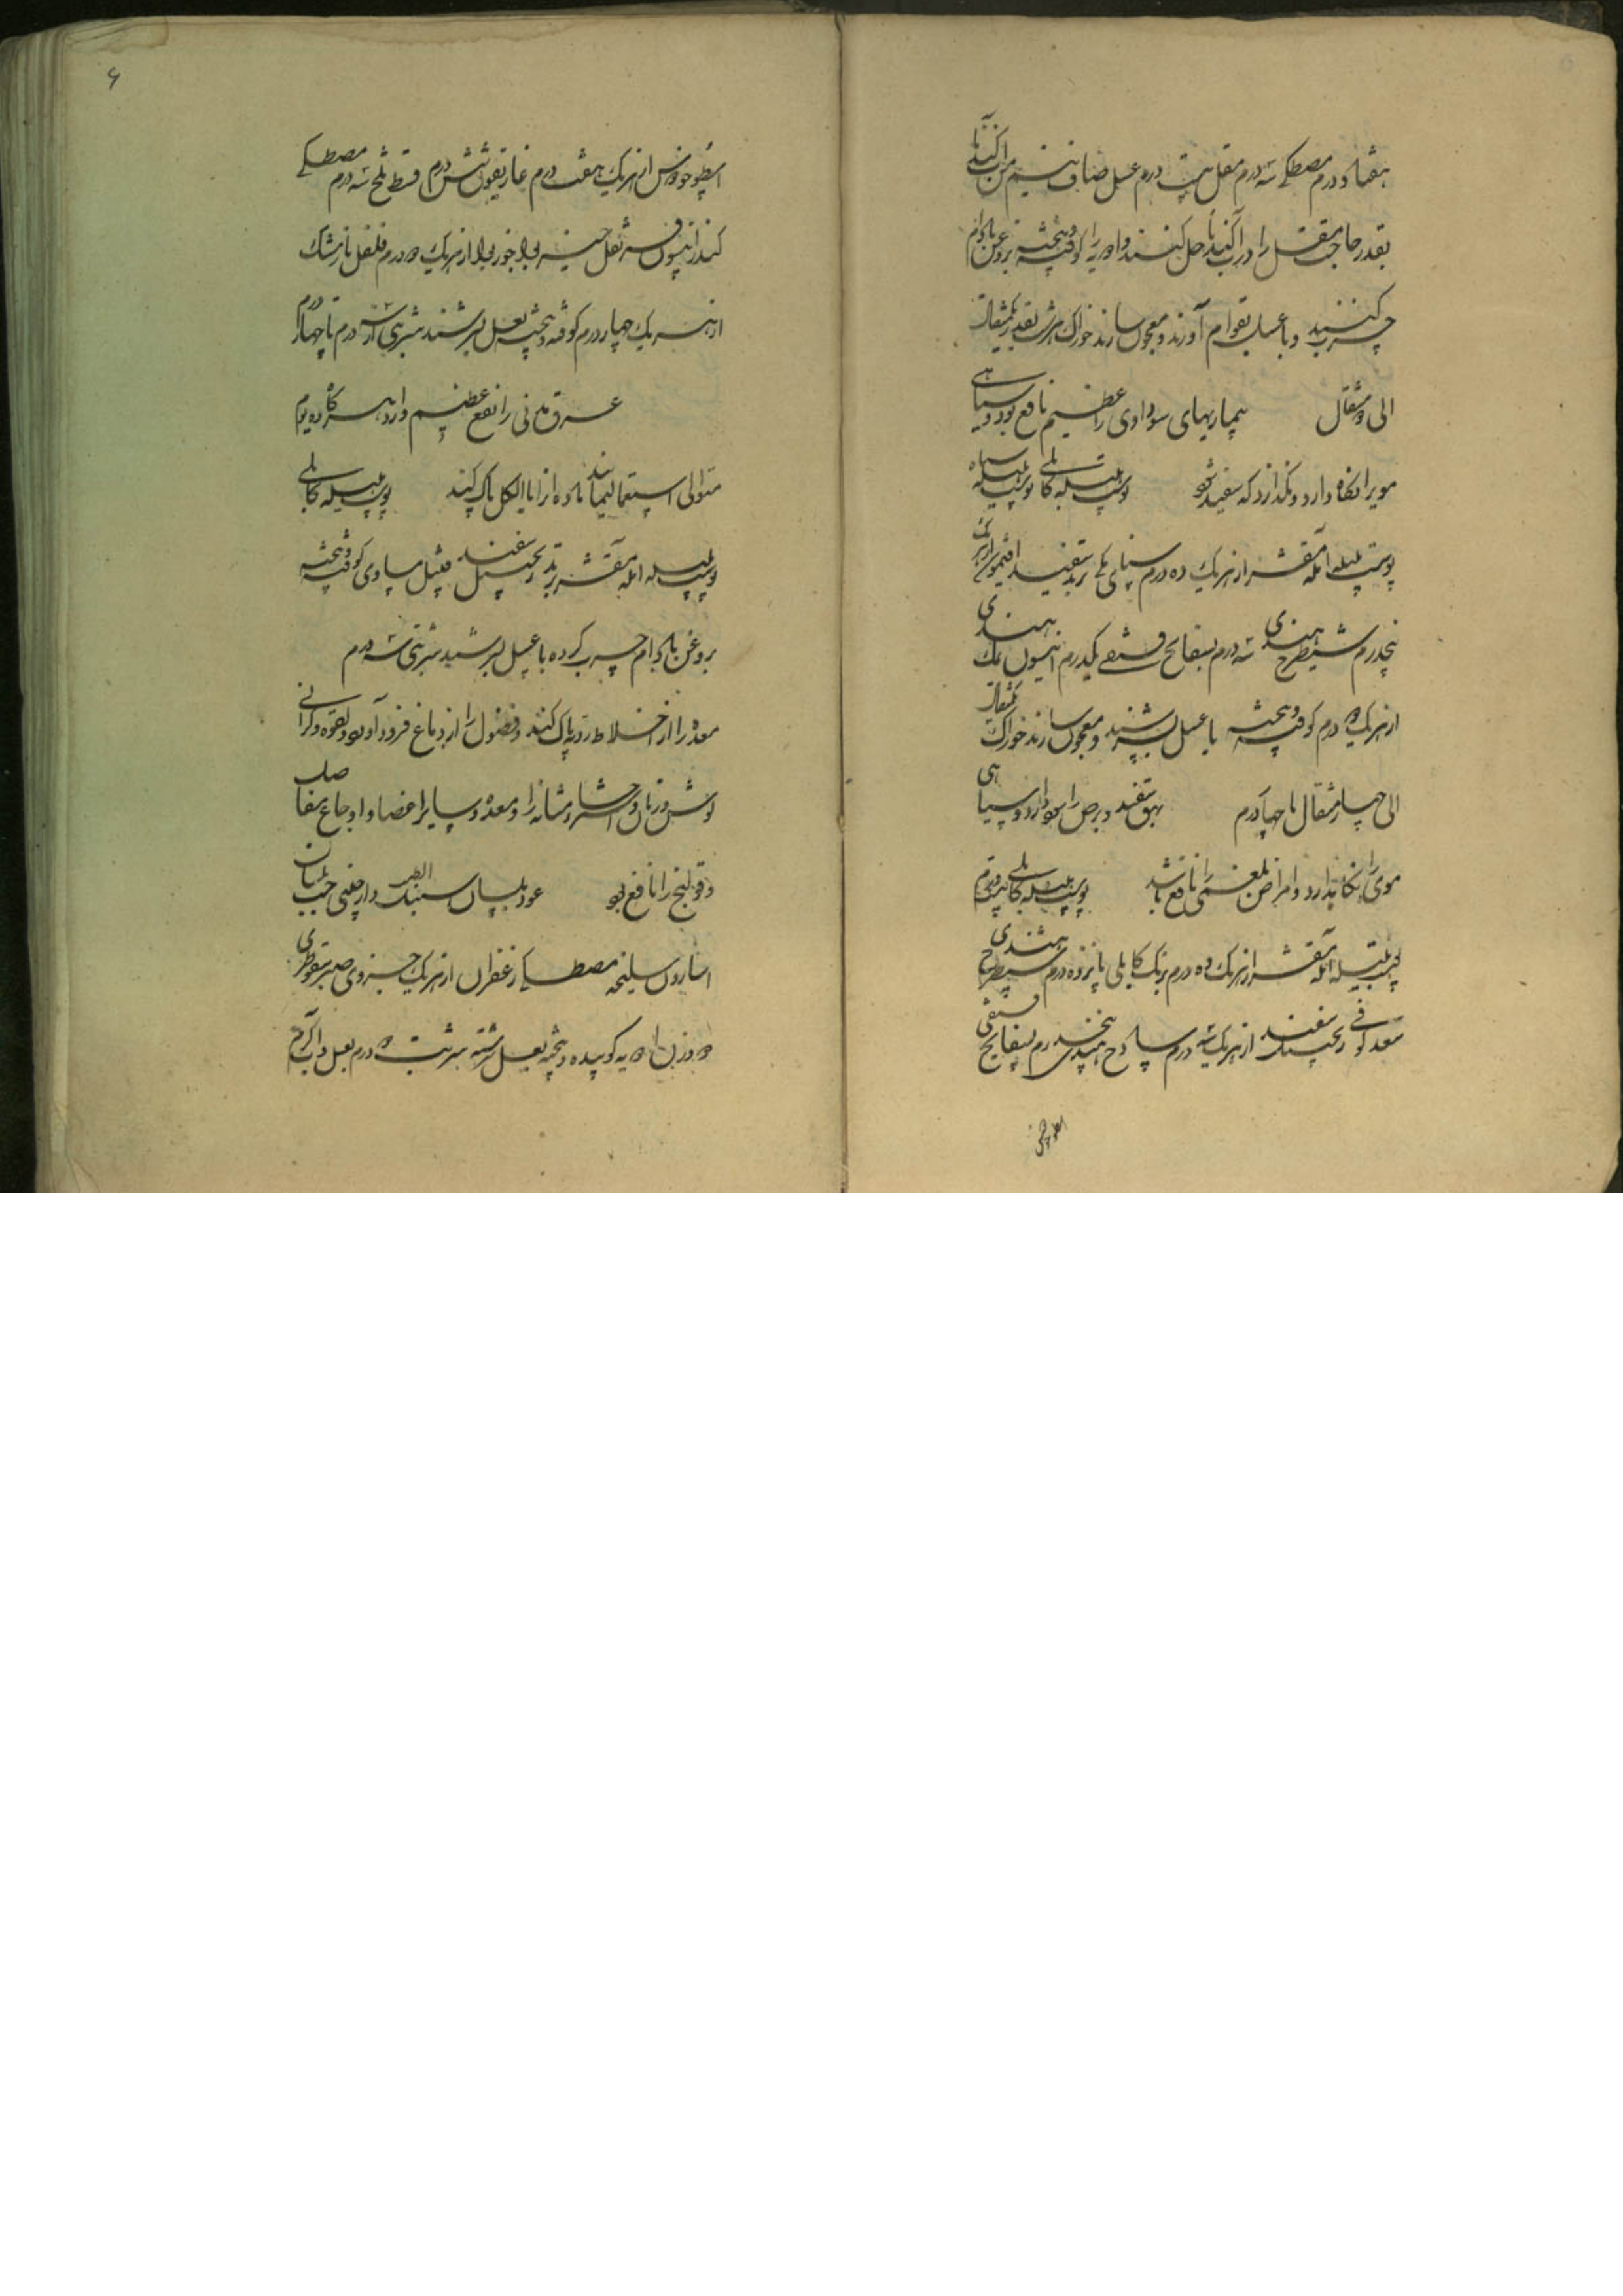 هفتاد درم مصطکی سه درم مقل بیست درم عسل صاف نیم من آب گندنا
بقدر حاجت مقل را در آب گندنا حل کنند و ادویه را کوفته و بیخته بروغن بادام
چرب کنند و با عسل بقوام آورند و معجون سازند خوراک هر شب بقدر یکمثقال
الی دو مثقال بیماریهای سوداوی را عظیم نافع بود و سیاهی
مویرا نگاه دارد و نگذارد که سفید شود پوست هلیله کابلی پوست هلیله سیاه
پوست بلیله آمله مقشر از هر یک ده درم سنای مکی تربد سفید افتیمون از هر یک
پنجدرم شیطرج هندی سه درم بسفایج فستقی یکدرم انیسون نمک هندی
از هر یک دو درم کوفته و بیخته با عسل بسرشند و معجون سازند خوراک یکمثقال
الی چهار مثقال تا چهار درم بهق سفید و برص را سود دارد و سیاهی
موی را نگاهدارد و امراض بلغمی را نافع باشد پوست هلیله کابلی بیست درم
پوست بلیله آمله مقشر از هر یک ده درم برنک کابلی پانزده درم شیطرج هندی
سعد کوفی زنجبیل سفید از هر یک سه درم ساذج هندی پنجدرم بسفایج فستقی
اسطوخودوس
۶
اسطوخودوس از هر یک هفت درم غاریقون شش درم قسط تلخ سه درم مصطکی
کندر انیسون قرفه نقل حبشیه قرنفل جوزبوا از هر یک دو درم فلفل نارمشک
از هر یک چهار درم کوفته و بیخته بعسل بسرشند شربتی از سه درم تا چهار درم
عرق مدنی را نفع عظیم دارد هر گاه ده یوم
متوالی استعمال نمایند ماده را بالکل پاک کند پوست هلیله کابلی
پوست بلیله آمله مقشر تربد سفید زنجبیل مثل مساوی کوفته و بیخته
بروغن بادام چرب کرده با عسل بسرشند شربتی سه درم
معده را از اخلاط ردیه پاک کند و فضول را از دماغ فرود آورد و لقوه و گرانی
گوش و زبان و احشا و مثانه را و معده و سایر اعضا و اوجاع مفاصل
و قولنج را نافع بود عود بلسان سنبل الطیب دارچینی حب بلسان
اسارون سلیخه مصطکی زعفران از هر یک جزوی صبر سقوطری
دو وزن ادویه کوبیده و بیخته بعسل سرشته شربت دو درم بعسل و آب گرم